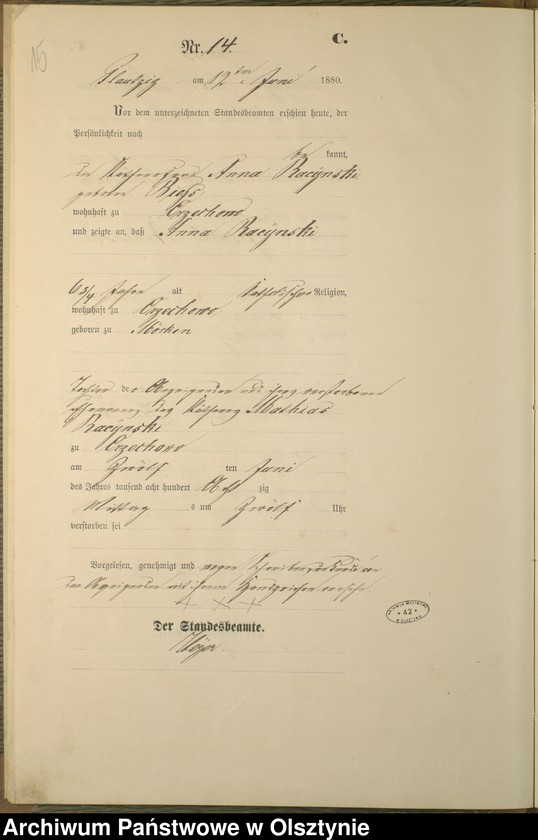 15
C.
Nr. 14.
Plautzig am 12ten Juni 1880.
Vor dem unterzeichneten Standesbeamten erschien heute, der
Persönlichkeit nach
be kannt,
die Käthnerfrau Anna Racÿnski
geborene
wohnhaft zu Orzechowo
und zeigte an, daß Anna Racÿnski
6 3/4 Jahre alt katholischer Religion,
wohnhaft zu Orzechowo
geboren zu Mörken
Tochter der Anzeigenden und ihres verstorbenen
Ehemannes des Mathias
Racÿnski
zu Orzechowo
am Zwölf ten Juni
des Jahres tausend acht hundert Acht zig
Mittag s um Zwölf Uhr
verstorben sei
Vorgelesen, genehmigt und wegen
der Anzeigenden mit ihrem Handzeichen versehen
+ × +
Der Standesbeamte.
42
Archiwum Państwowe w Olsztynie